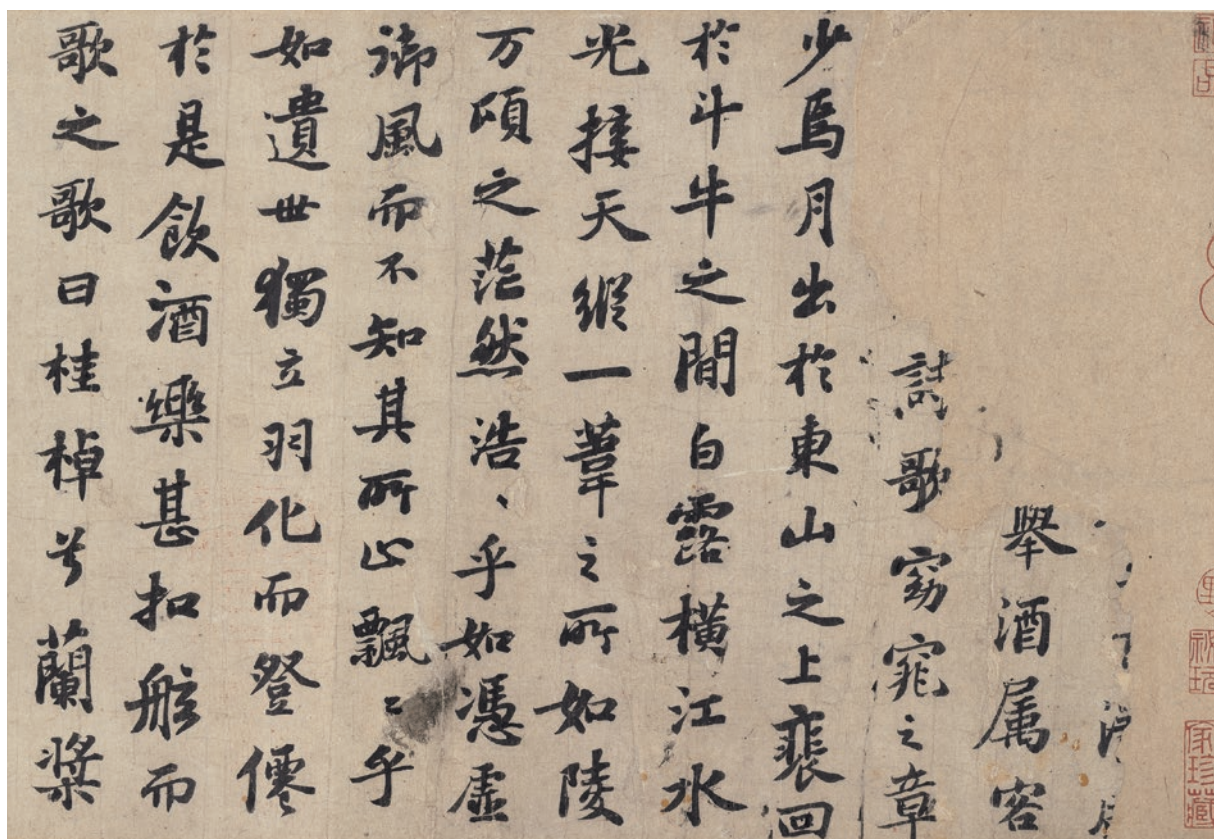 舉酒属客
詩歌窈窕之章
少焉月出於東山之上裴回
於斗牛之間白露橫江水
光接天縱一葦之所如陵
万頃之茫然浩、乎如憑虛
御風而不知其所止飄〻乎
如遺世獨立羽化而登僊
於是飲酒樂甚扣舷而
歌之歌曰桂棹兮蘭槳